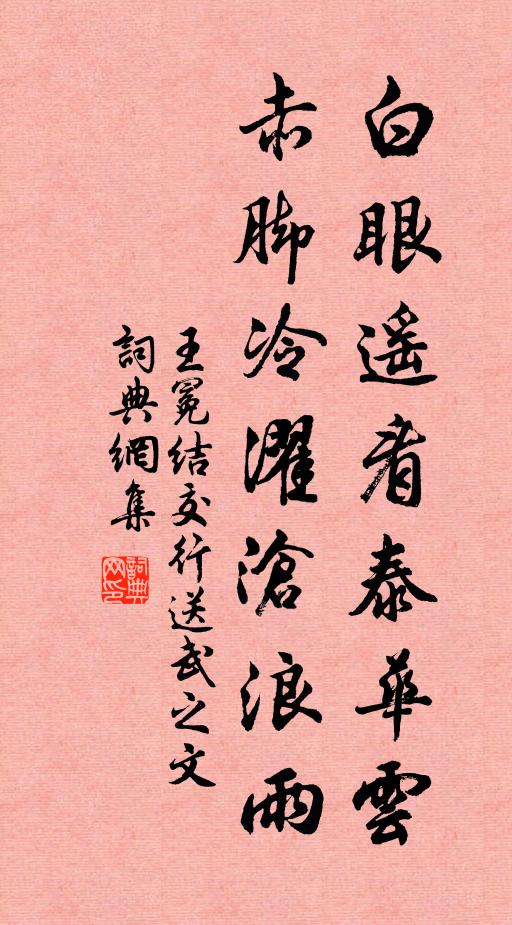 白眼遥看泰華雲
赤脚冷濯滄浪雨
王冕结交行送武之文
詞典網集
詞典网印